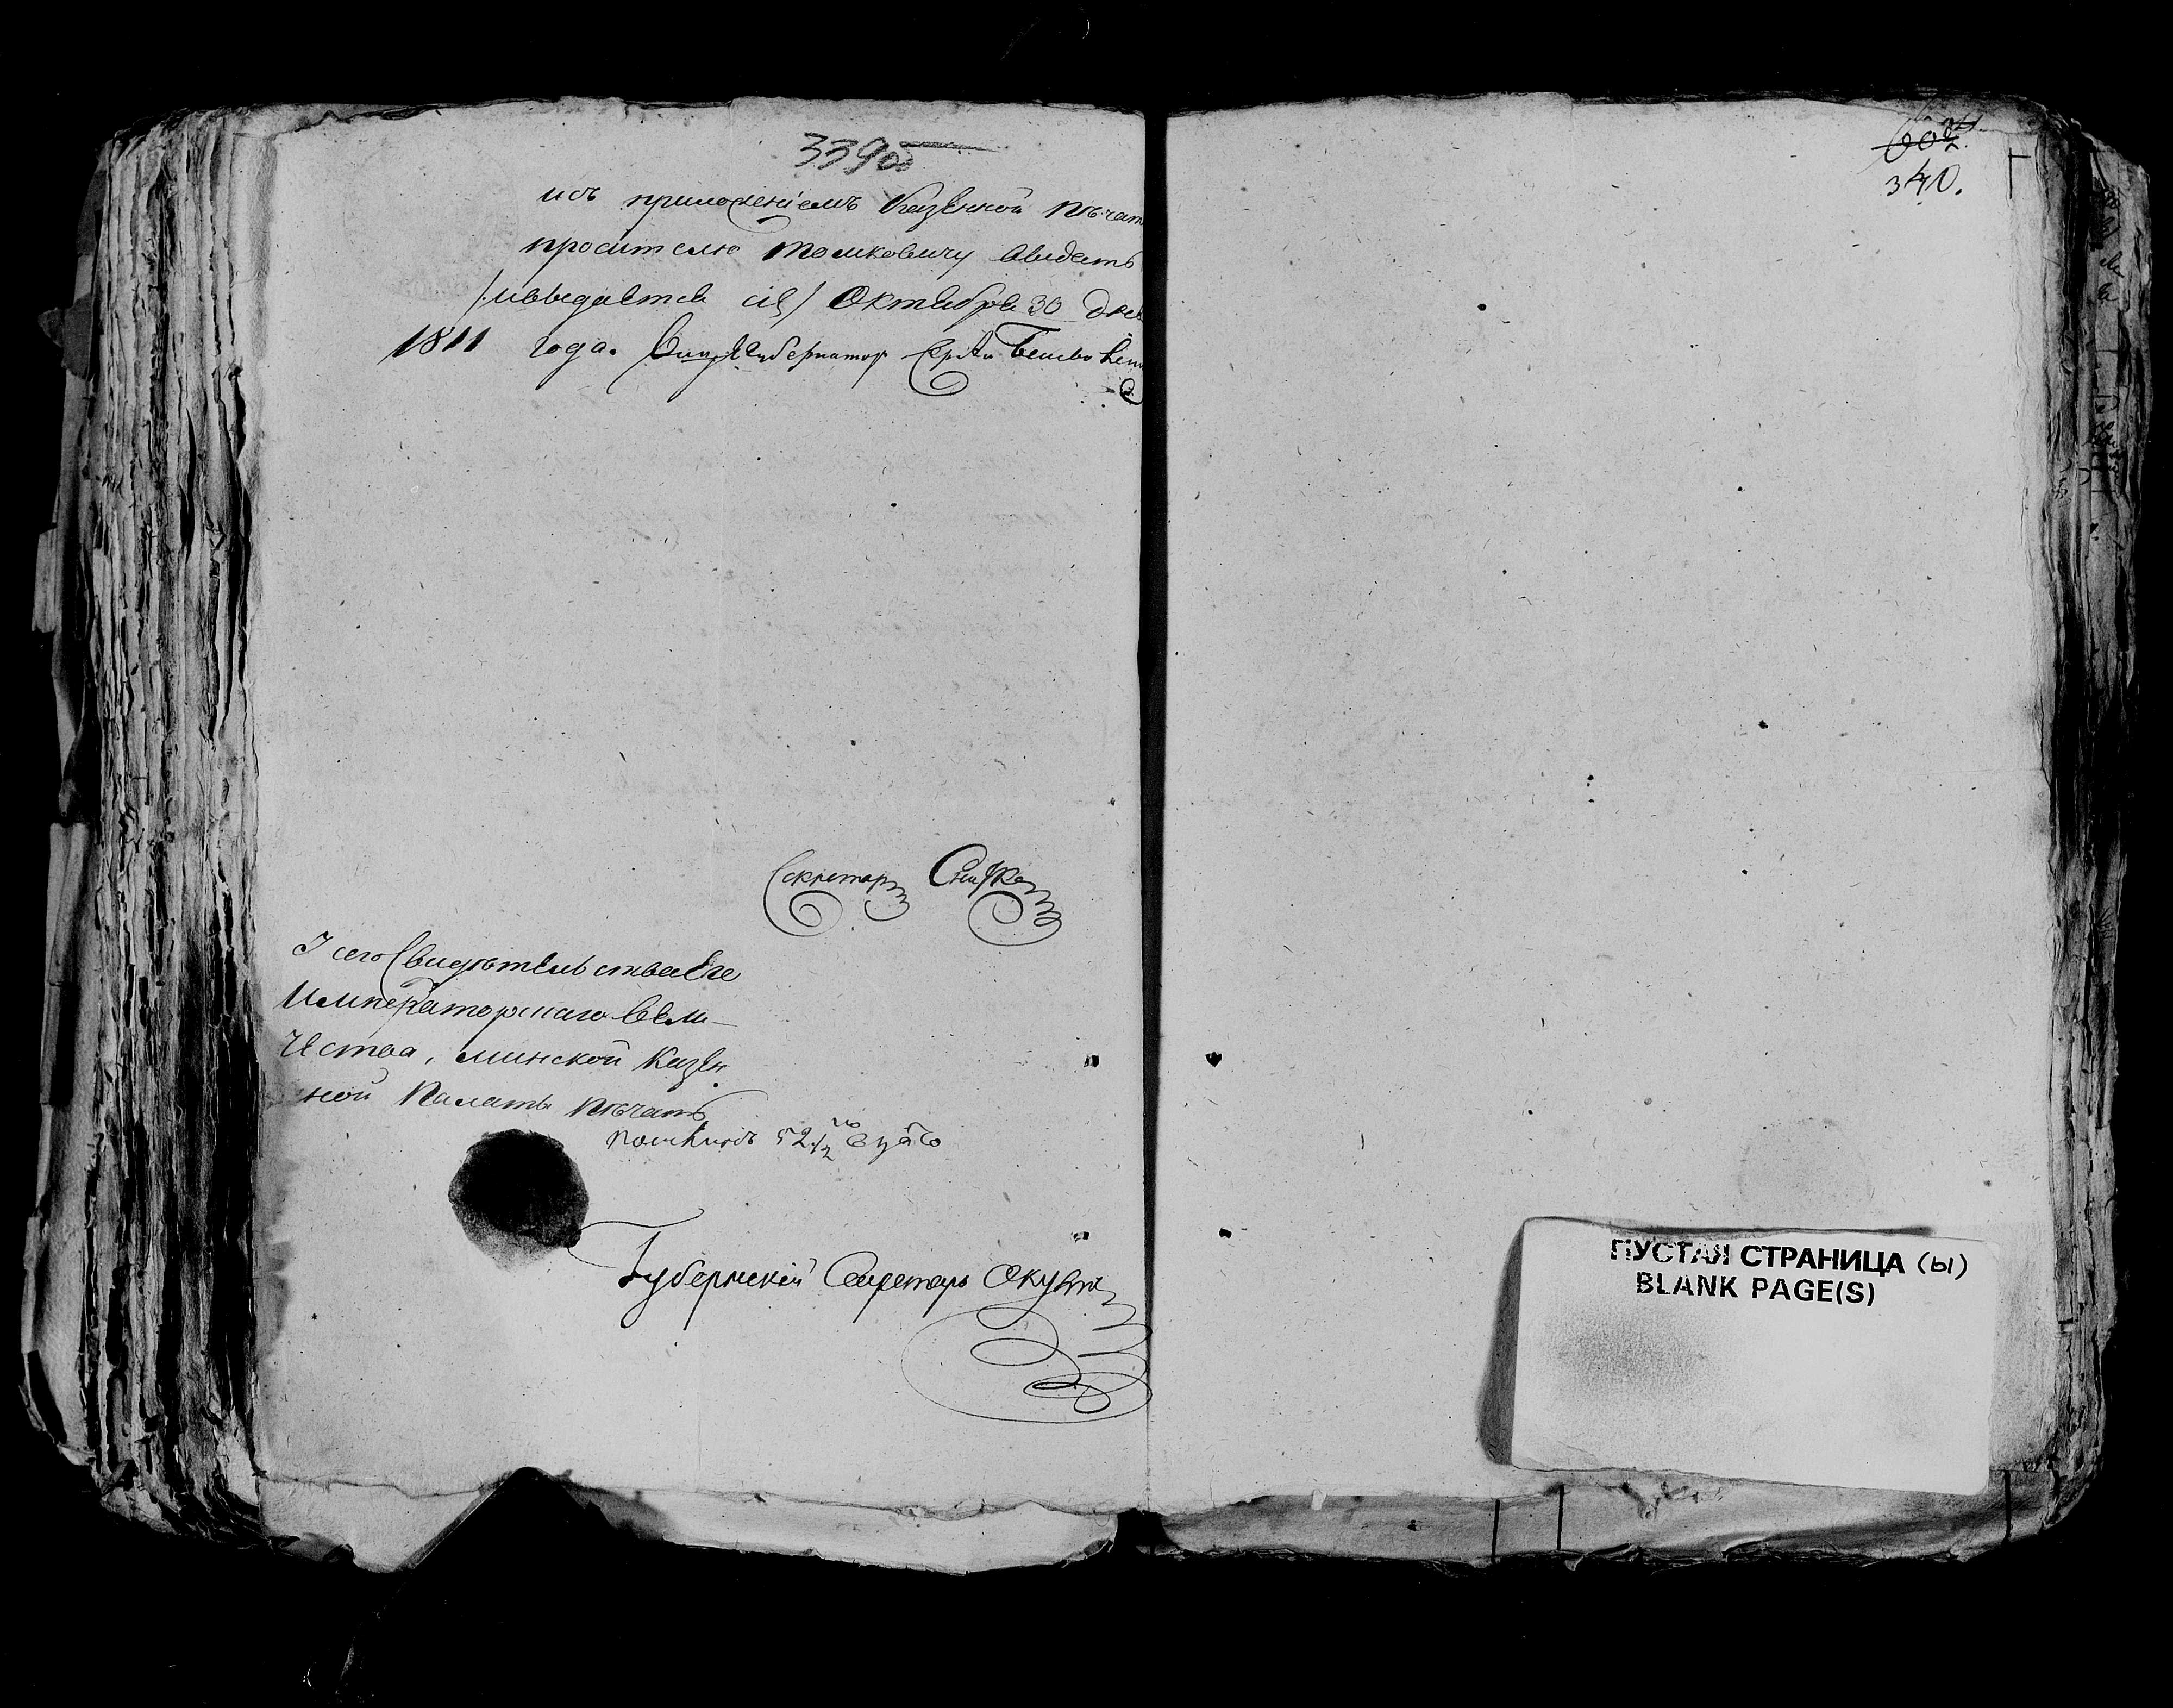 339об
исъ приложениемъ Казенной Печат
просителю Томковичу Выдать
/ : и выдается сіе / Октября 30 дня
1811 года. Вице Губернаторъ
Секретарь
У сего Свидѣтельства Его
Императорскаго Вели-
чества, минской Казен
ной Палаты печать
пошлинъ 52 1/2
Губернскій Секретарь
602
340.
ПУСТАЯ СТРАНИЦА (Ы)
BLANK PAGE(S)